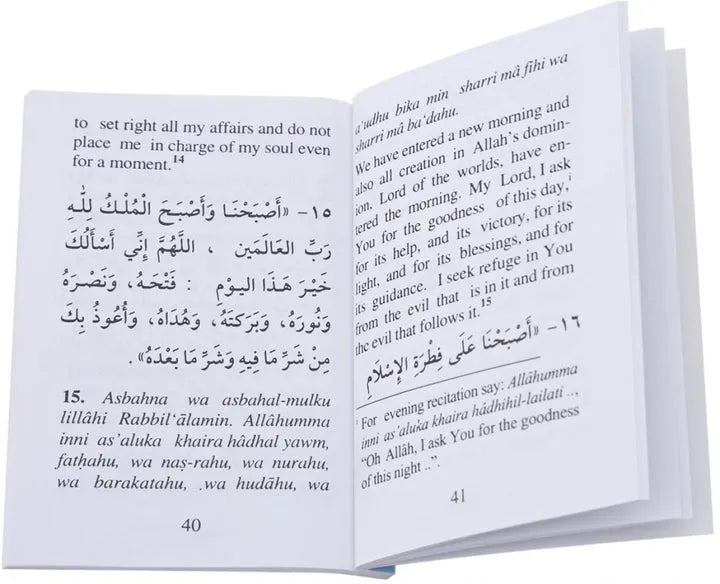 to set right all my affairs and do not
place me in charge of my soul even
for a moment.¹⁴
١٥- «أَصْبَحْنَا وَأَصْبَحَ الْمُلْكُ لِلَّهِ
رَبِّ العَالَمَيِن ، اللَّهُمَّ إِنِّي أَسْأَلُكَ
خَيْرَ هَذَا اليَومِ : فَتْحَهُ، وَنَصْرَهُ
وَنُورَهُ، وَبَرَكتَهُ، وَهُدَاهُ، وَأَعُوذُ بِكَ
مِنْ شَرِّ مَا فِيهِ وَشَرِّ مَا بَعْدَهُ» .
15. Asbahna wa asbahal-mulku
lillâhi Rabbil‘âlamin. Allâhumma
inni as’aluka khaira hâdhal yawm,
fatḥahu, wa naṣ-rahu, wa nurahu,
wa barakatahu, wa hudāhu, wa
40
a’udhu bika min sharri mâ fîhi wa
sharri mâ ba‘dahu.
We have entered a new morning and
also all creation in Allah’s domin-
ion, Lord of the worlds, have en-
tered the morning. My Lord, I ask
You for the goodness of this day,ⁱ
for its help, and its victory, for its
light, and for its blessings, and for
its guidance. I seek refuge in You
from the evil that is in it and from
the evil that follows it.¹⁵
١٦- «أَصْبَحْنَا عَلَى فِطْرَةِ الإِسْلَامِ
ⁱ For evening recitation say: Allâhumma
inni as’aluka khaira hâdhihil-lailati ..,
“Oh Allâh, I ask You for the goodness
of this night ..”.
41